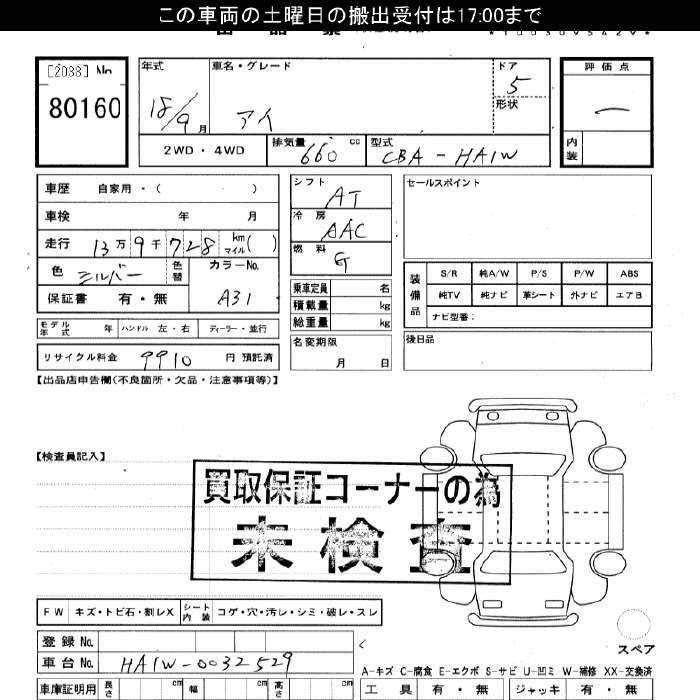 この車両の土曜日の搬出受付は17:00まで
[2038] No
80160
年式 車名・グレード ドア 5 評価点
18/9月 アイ 形状 一
2WD・4WD 排気量 660 cc 型式 CBA-HA1W 内装
車歴 自家用・( )
車検 年 月
走行 13万9千728 km マイル ( )
色 シルバー 色替 カラーNo. A31
保証書 有・無
シフト AT
冷房 AAC
燃料 G
乗車定員 名
積載量 kg
総重量 kg
名変期限 月 日
セールスポイント
装備品 S/R 純A/W P/S P/W ABS
純TV 純ナビ 革シート 外ナビ エアB
ナビ型番:
後日品
モデル年式 年 ハンドル 左・右 ディーラー・並行
リサイクル料金 9910 円 預託済
【出品店申告欄(不良箇所・欠品・注意事項等)】
【検査員記入】
買取保証コーナーの為
未検査
FW キズ・トビ石・割レX シート内装 コゲ・穴・汚レ・シミ・破レ・スレ
登録No.
車台No. HA1W-0032529
スペア
A-キズ C-腐食 E-エクボ S-サビ U-凹ミ W-補修 XX-交換済
車庫証明用 長さ cm 幅 cm 高さ cm 工具 有・無 ジャッキ 有・無